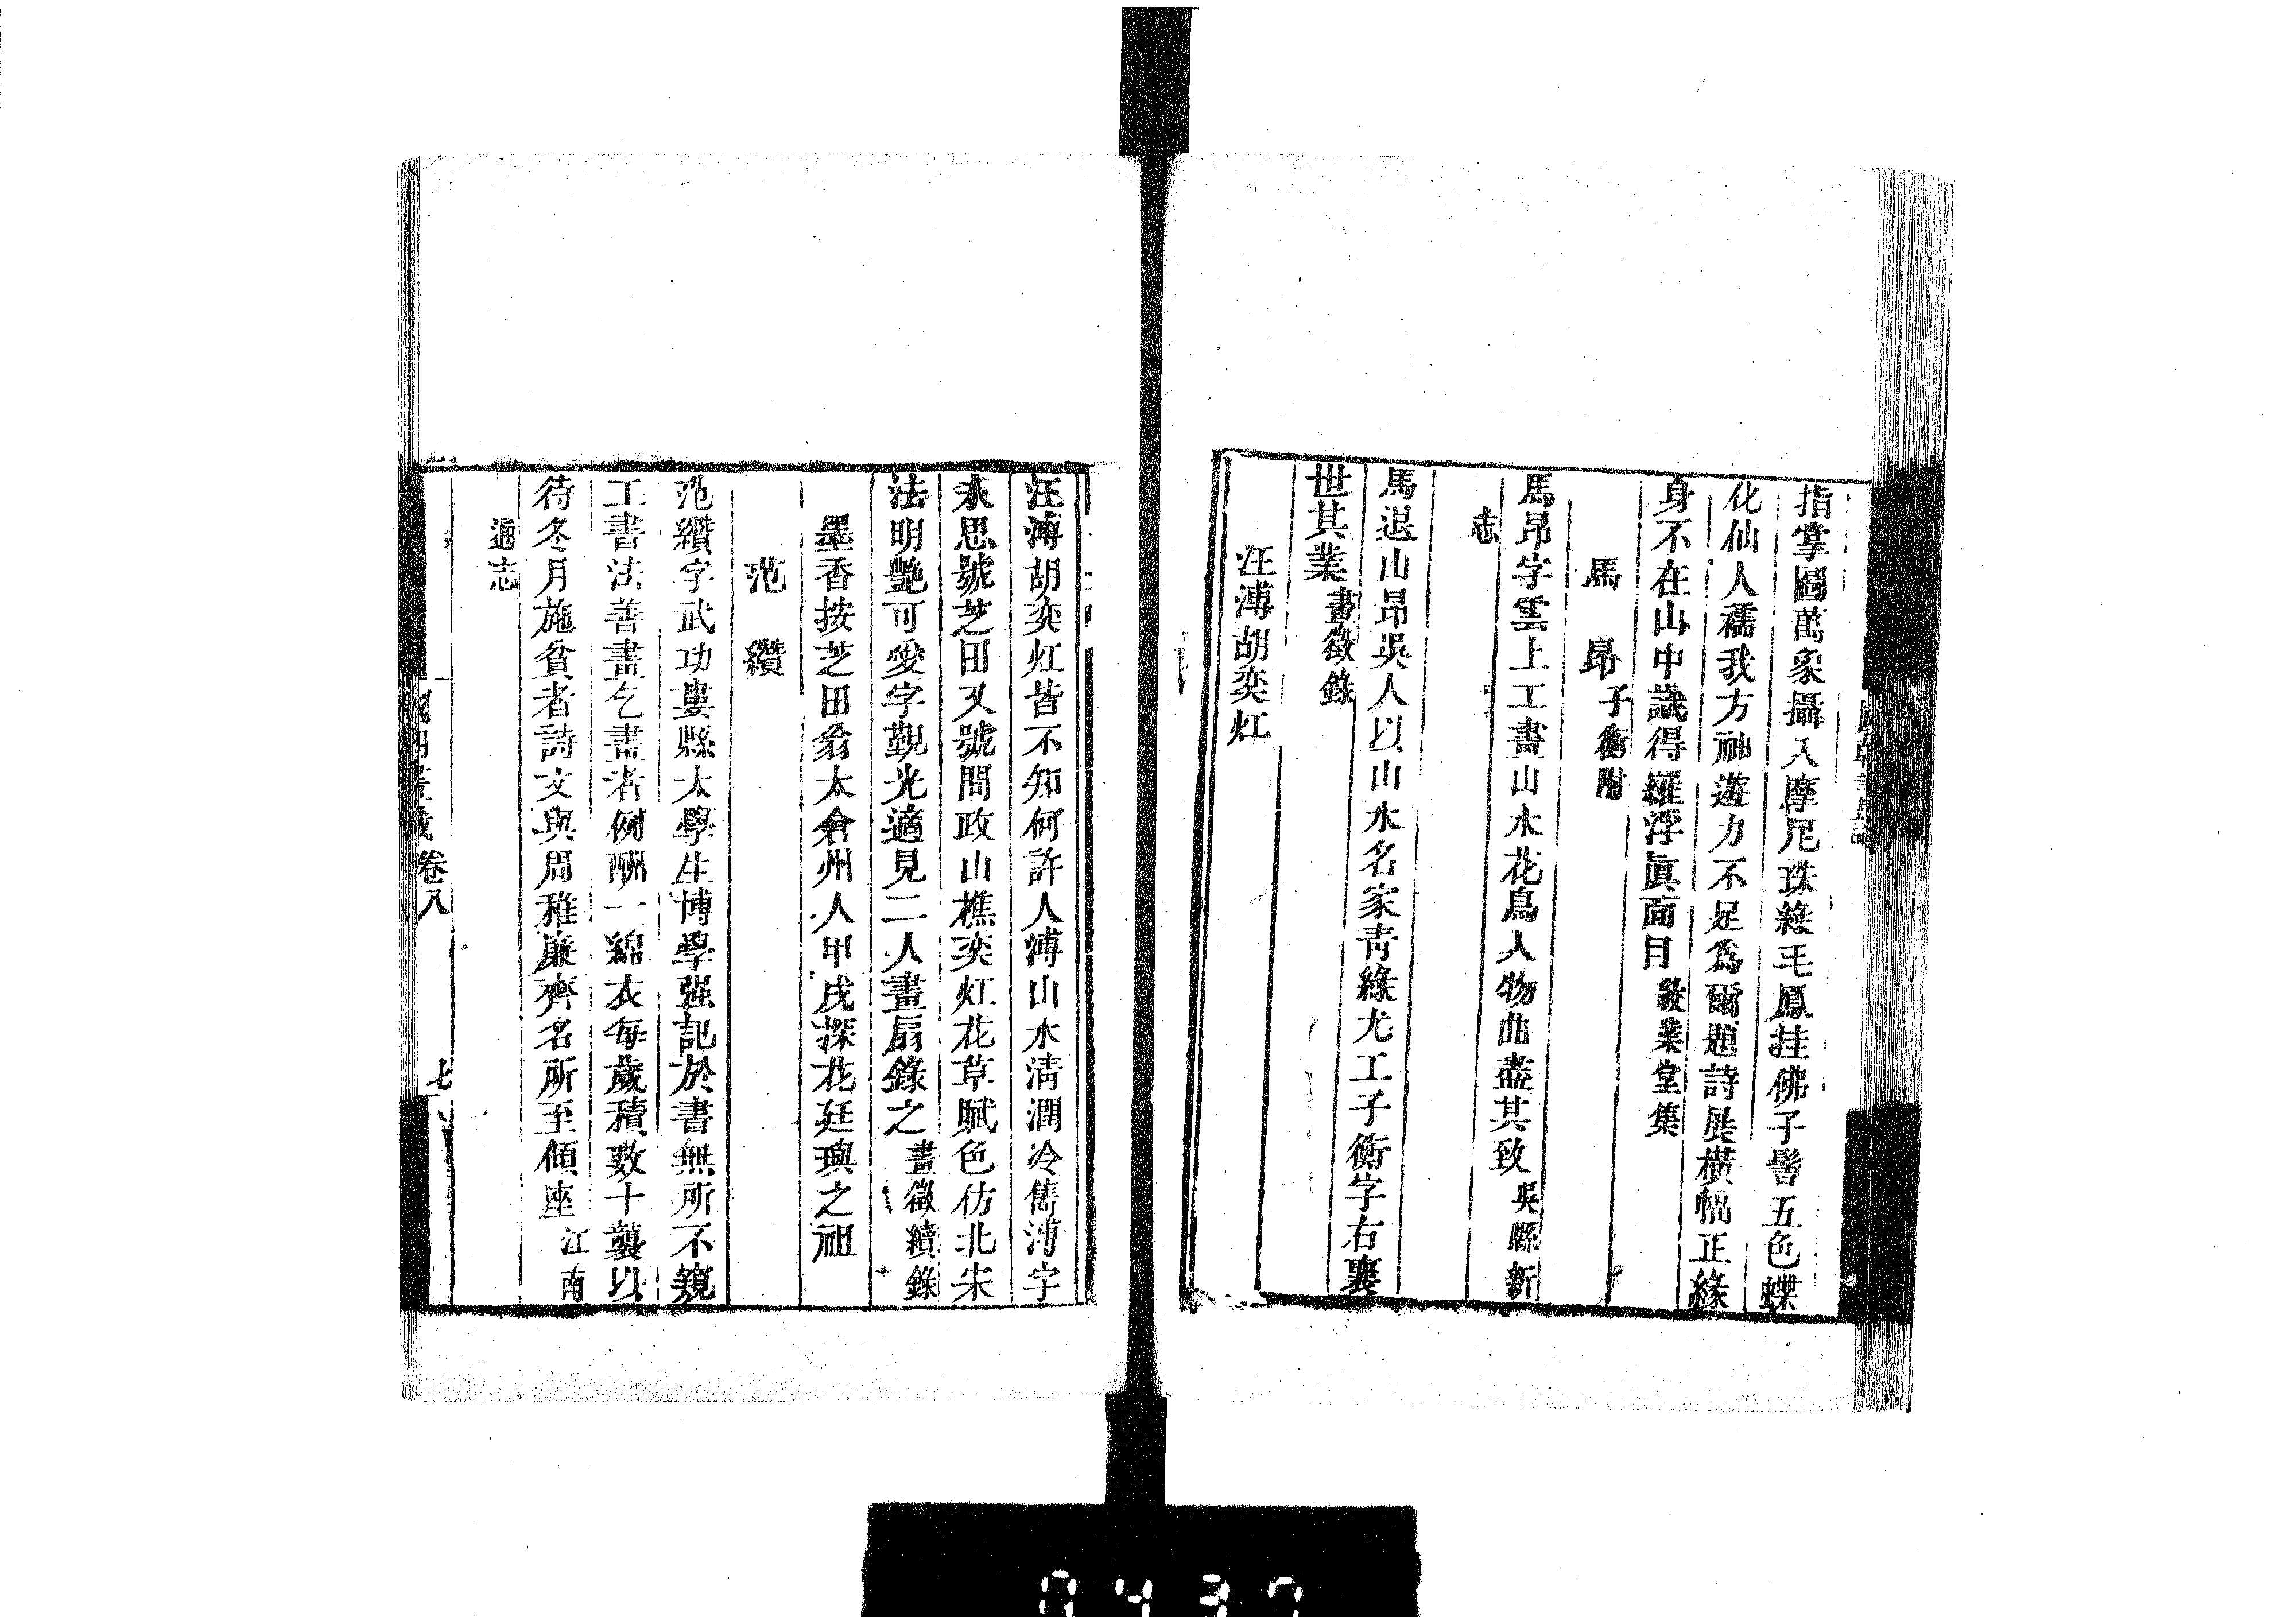 指掌圖萬象攝入摩尼珠綠毛鳳挂佛子髻五色蝶
化仙人襦我方神遊力不足為爾題詩展橫幅正緣
身不在山中識得羅浮眞面目敬業堂集
馬昂子衡附
馬昂字雲上工書山水花鳥人物曲盡其致吳縣新
志
馬退山昂吳人以山水名家青綠尤工子衡字右襄
世其業畫徵錄
汪溥胡奕灴
汪溥胡奕灴皆不知何許人溥山水清潤冷雋溥字
永思號芝田又號問政山樵奕灴花草賦色仿北宋
法明艷可愛字觀光適見二人畫扇錄之畫徵續錄
墨香按芝田翁太倉州人甲戌探花廷璵之祖
范纘
范纘字武功婁縣太學生博學强記於書無所不窺
工書法善畫乞畫者例酬一綿衣每歲積數十襲以
待冬月施貧者詩文與周稚廉齊名所至傾座江南
通志
卷八
七
0437